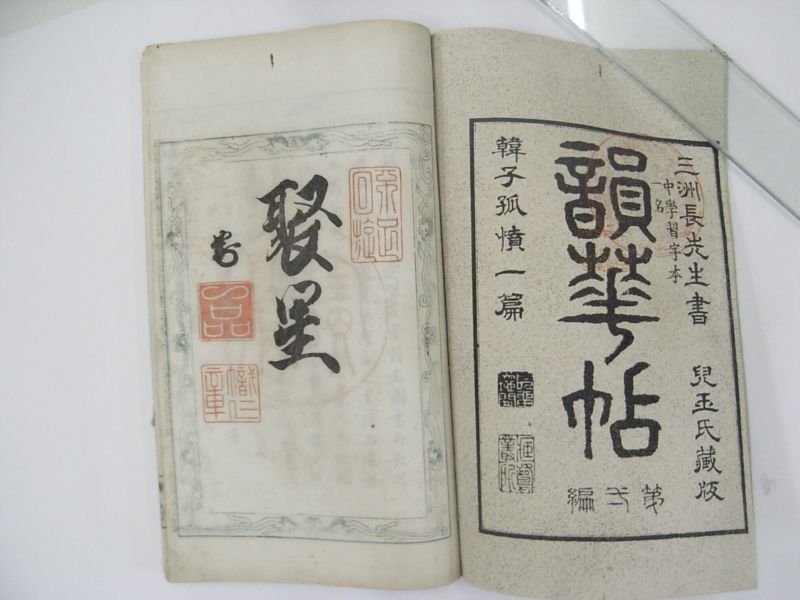 三洲長先生書
一名
中學習字本
兒玉氏藏版
韻華帖
第弐編
韓子孤憤一篇
聚星